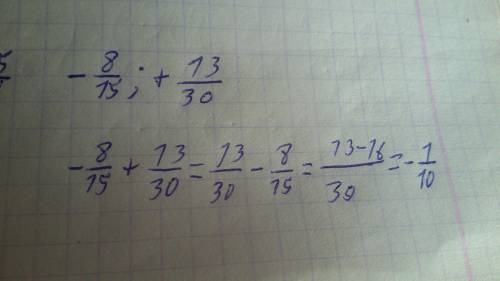 - 8/15 ; + 13/30
- 8/15 + 13/30 = 13/30 - 8/15 = 13-16/30 = - 1/10